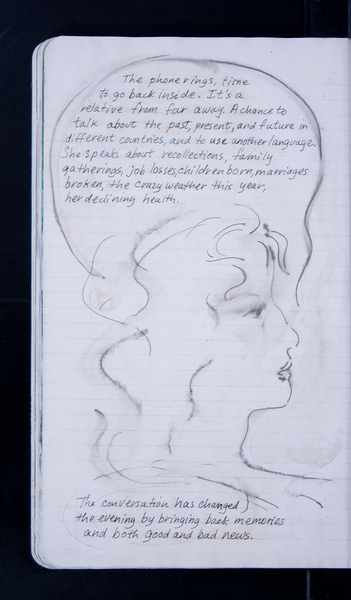 The phone rings, time
to go back inside. It's a
relative from far away. A chance to
talk about the past, present, and future in
different countries, and to use another language.
She speaks about recollections, family
gatherings, job losses, children born, marriages
broken, the crazy weather this year,
her declining health.
The conversation has changed
the evening by bringing back memories
and both good and bad news.